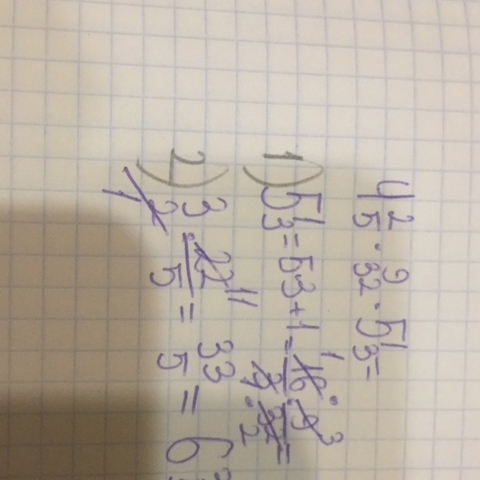 4 2/5 · 9/32 · 5 1/3 =
1) 5 1/3 = 53+1 = 16/3 · 9/32 =
2) 3/2 · 22/5 = 33/5 = 6